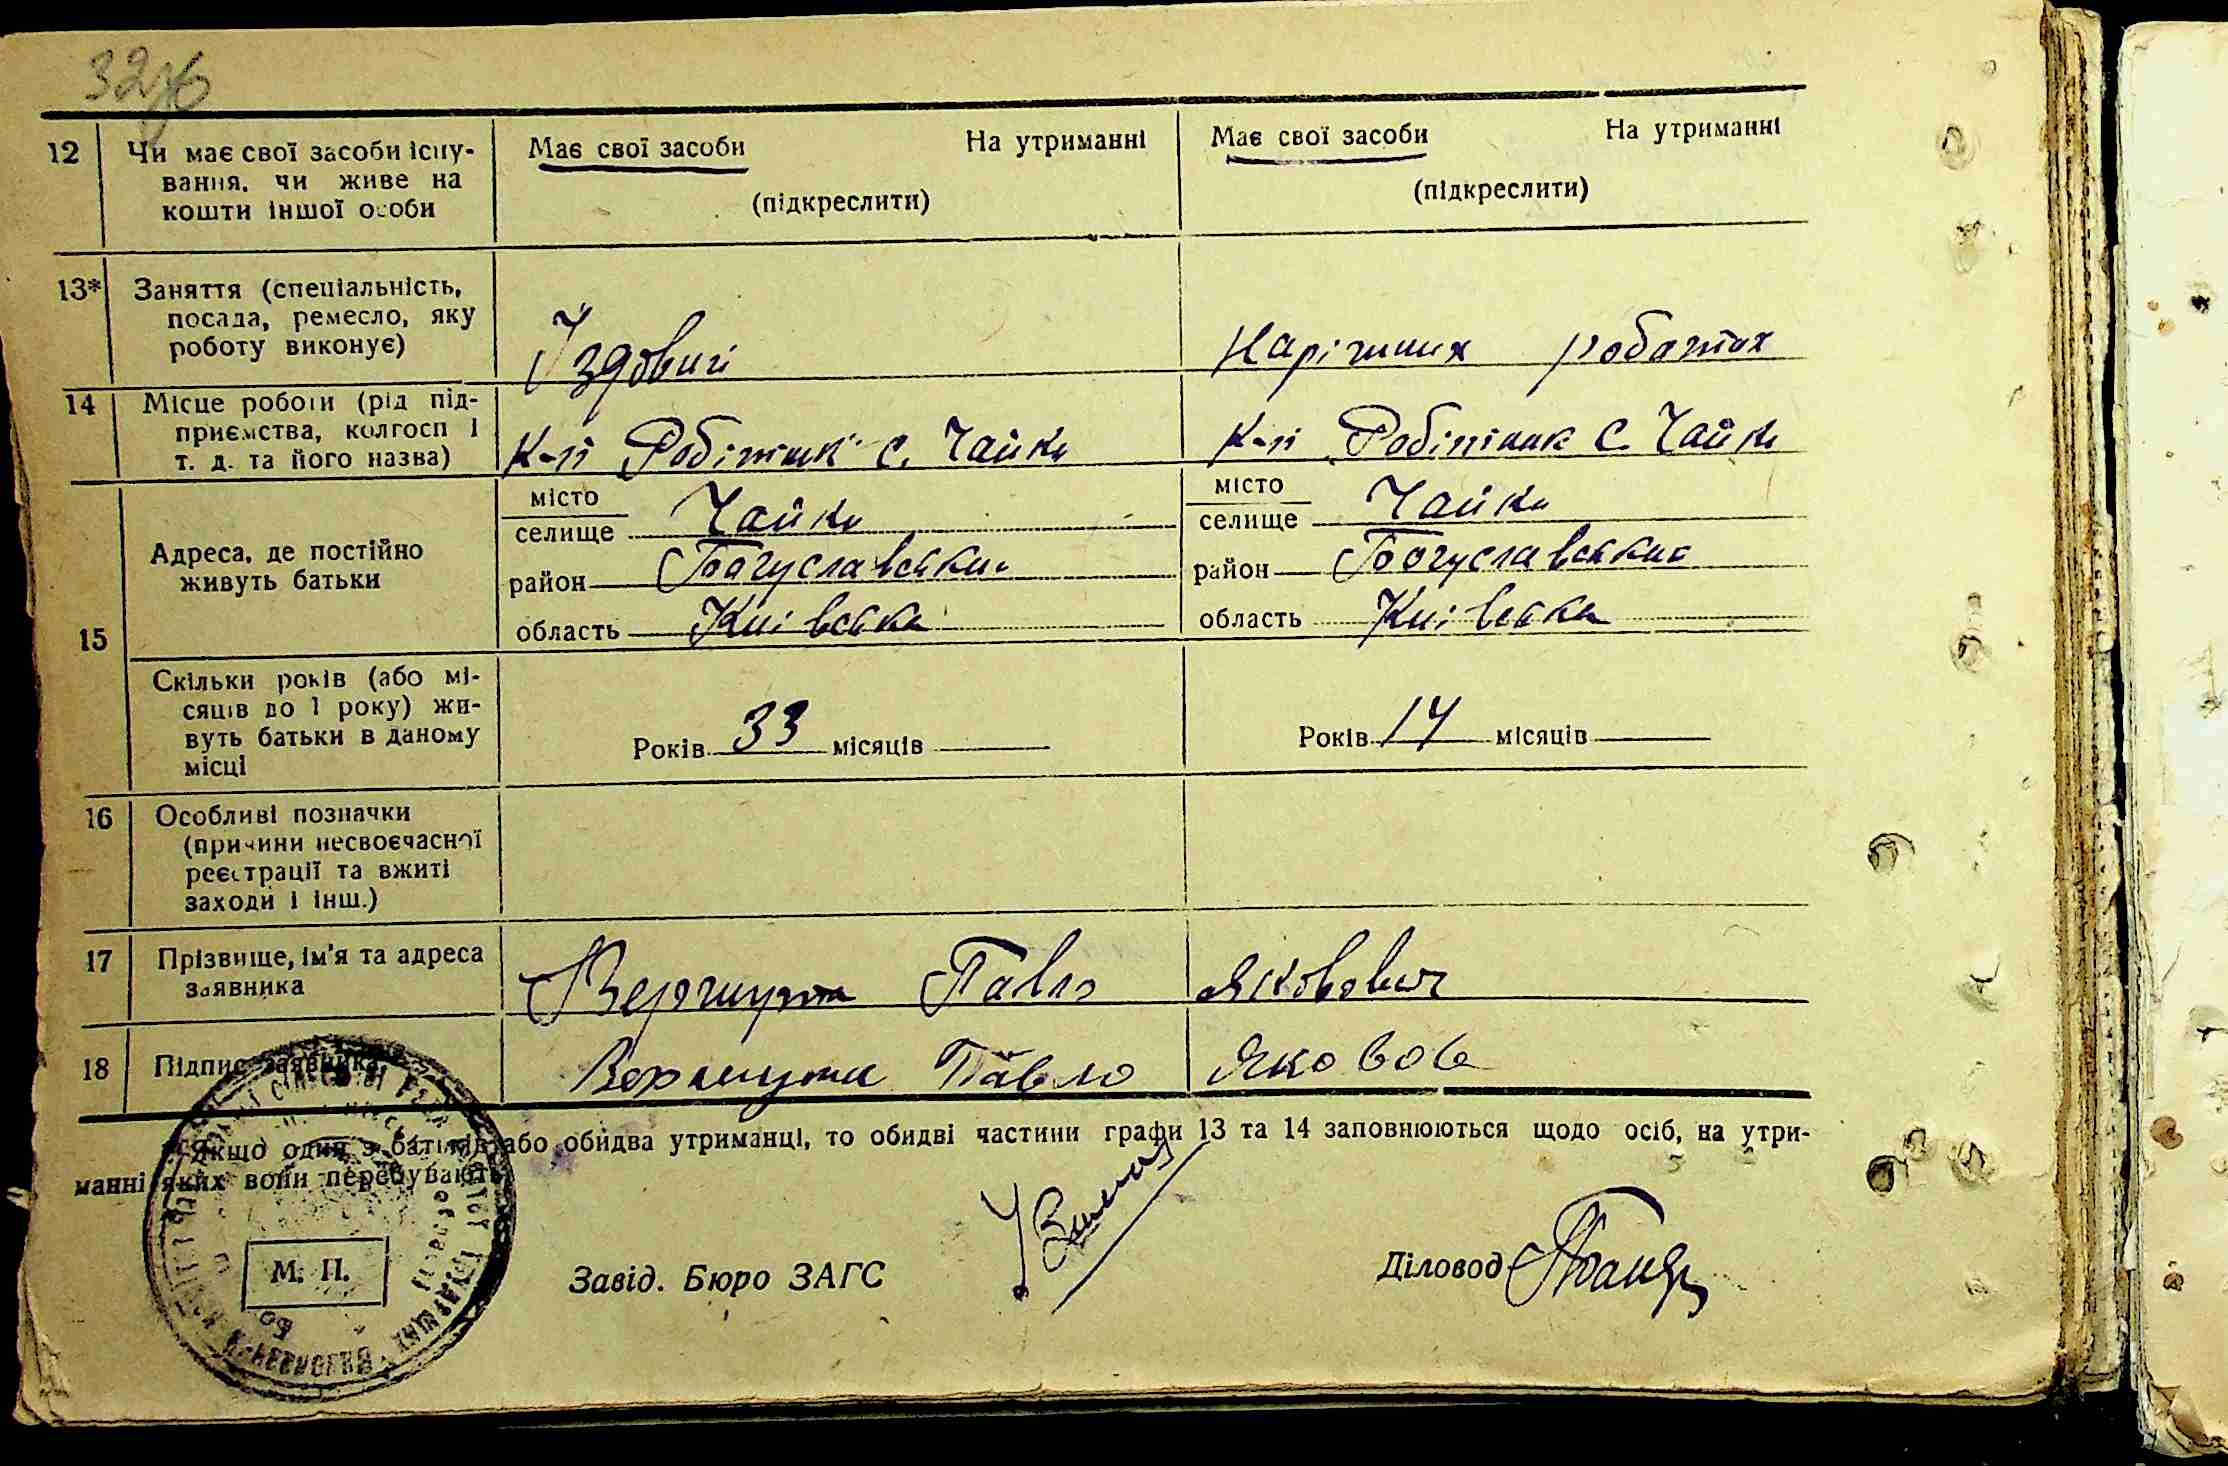 12 Чи має свої засоби існу-
вання, чи живе на
кошти іншої особи
Має свої засоби На утриманні
(підкреслити)
Має свої засоби На утриманні
(підкреслити)
13* Заняття (спеціальність,
посада, ремесло, яку
роботу виконує)
Їздовий
На різних роботах
14 Місце роботи (рід під-
приємства, колгосп і
т. д. та його назва)
К-п Робітник с. Чайки
К-п Робітник с. Чайки
15 Адреса, де постійно
живуть батьки
місто
селище Чайки
район Богуславський
область Київська
місто
селище Чайки
район Богуславський
область Київська
Скільки років (або мі-
сяців до 1 року) жи-
вуть батьки в даному
місці
Років 33 місяців
Років 14 місяців
16 Особливі позначки
(причини несвоєчасної
реєстрації та вжиті
заходи і інш.)
17 Прізвище, ім'я та адреса
заявника
Павло Яковович
18 Підпис заявника
Павло Яковов
* Якщо один з батьків або обидва утриманці, то обидві частини графи 13 та 14 заповнюються щодо осіб, на утри-
манні яких вони перебувають
М. П.
Завід. Бюро ЗАГС
Діловод